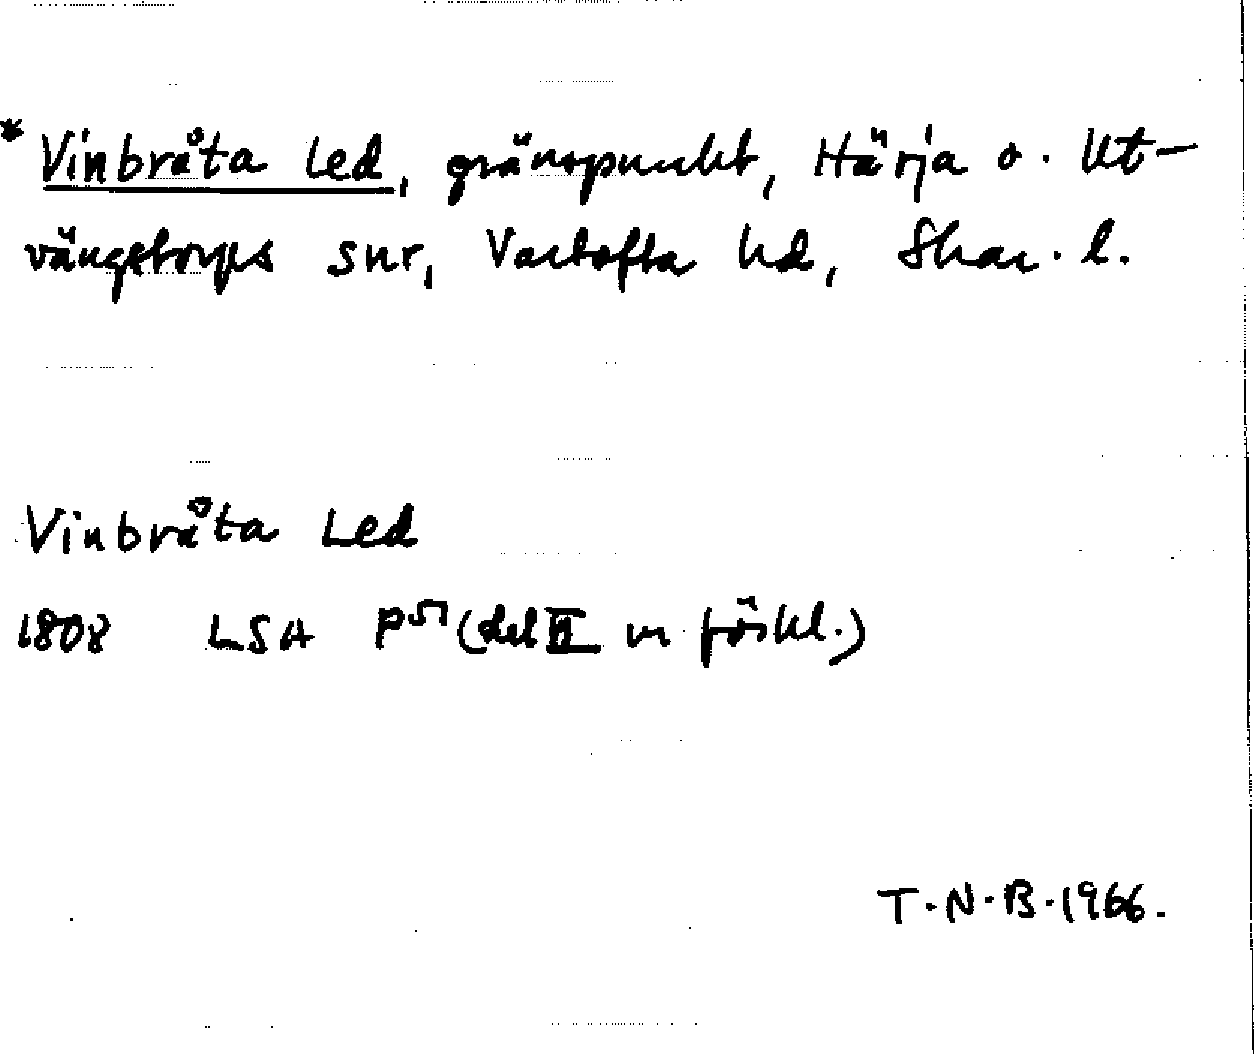 * Vinbråta Led, gränspunkt, Härja o. Ut-
vängstorps snr, Vartofta hd, Skar. l.
Vinbråta Led
1808 LSA P⁵⁷ (del II m förkl.)
T.N.B. 1966.